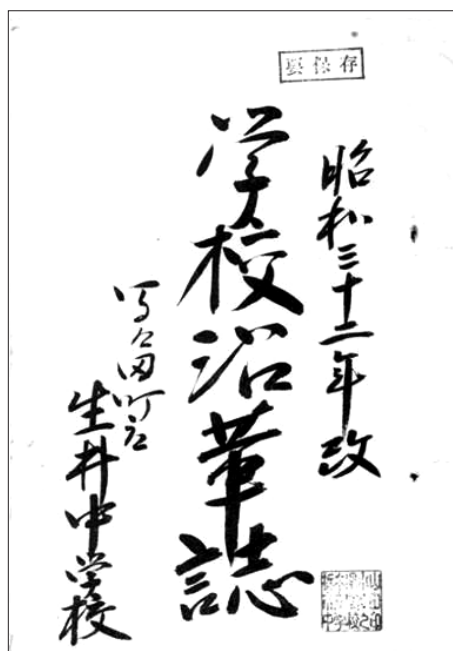 要保存
昭和三十二年改
学校沿革誌
間々田町立
生井中学校